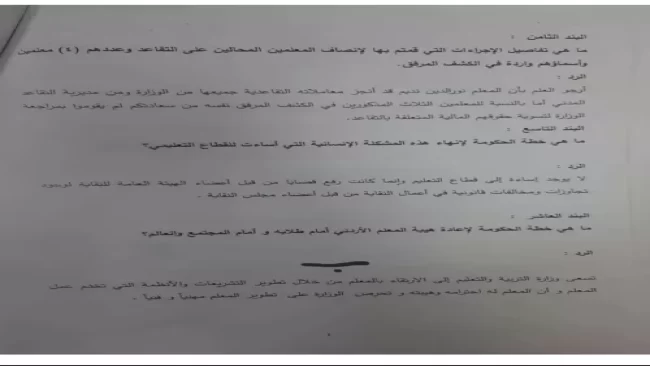 البند الثامن :
ما هي تفاصيل الإجراءات التي قمتم بها لإنصاف المعلمين المحالين على التقاعد وعددهم (٤) معلمين
وأسماؤهم واردة في الكشف المرفق.
الرد :
أرجو العلم بأن المعلم نورالدين نديم قد أنجز معاملاته التقاعدية جميعها من الوزارة ومن مديرية التقاعد
المدني أما بالنسبة للمعلمين الثلاث المذكورين في الكشف المرفق نفسه من سعادتكم لم يقوموا بمراجعة
الوزارة لتسوية حقوقهم المالية المتعلقة بالتقاعد.
البند التاسع :
ما هي خطة الحكومة لإنهاء هذه المشكلة الإنسانية التي أساءت للقطاع التعليمي؟
الرد :
لا يوجد إساءة إلى قطاع التعليم وإنما كانت رفع قضايا من قبل أعضاء الهيئة العامة للنقابة لوجود
تجاوزات ومخالفات قانونية في أعمال النقابة من قبل أعضاء مجلس النقابة .
البند العاشر :
ما هي خطة الحكومة لإعادة هيبة المعلم الأردني أمام طلابه و أمام المجتمع والعالم؟
الرد :
تسعى وزارة التربية والتعليم إلى الارتقاء بالمعلم من خلال تطوير التشريعات والأنظمة التي تخدم عمل
المعلم و أن المعلم له احترامه وهيبته و تحرص الوزارة على تطوير المعلم مهنياً و فنياً .